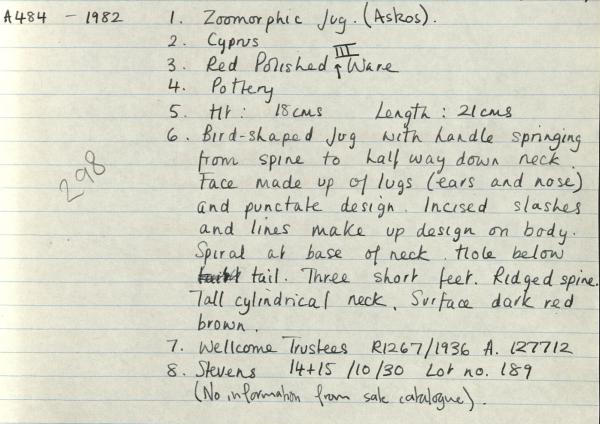 A484 - 1982
1. Zoomorphic Jug. (Askos).
2. Cyprus
3. Red Polished III Ware
4. Pottery
5. Ht: 18cms Length: 21cms
6. Bird-shaped Jug with handle springing
from spine to half way down neck.
Face made up of lugs (ears and nose)
and punctate design. Incised slashes
and lines make up design on body.
Spiral at base of neck. Hole below
tail. Three short feet. Ridged spine.
Tall cylindrical neck. Surface dark red
brown.
7. Wellcome Trustees R1267/1936 A. 127712
8. Stevens 14+15 /10/30 Lot no. 189
(No information from sale catalogue).
298